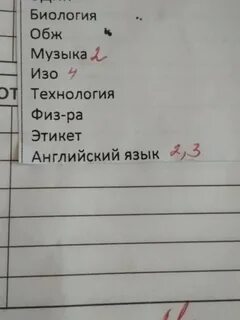 Биология
Обж 4
Музыка 2
Изо 4
Технология
Физ-ра
Этикет
Английский язык 2,3